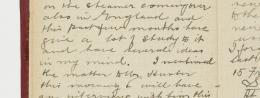 on the steamer coming over
also in England and
this past few months have
give a lot of study to it
and have several ideas
in my mind. I mentioned
the matter to Dr. Hunter
this morning & will have
an interview with him this